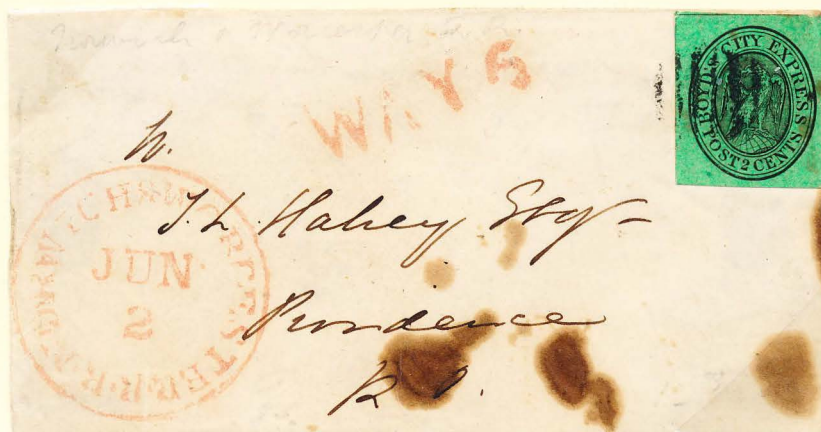 Norwich & Worcester R.R.
WAY 5
BOYD'S CITY EXPRESS
POST 2 CENTS
NORWICH & WORCESTER R.R.
JUN
2
J. L. Halsey Esq
Providence
R I.